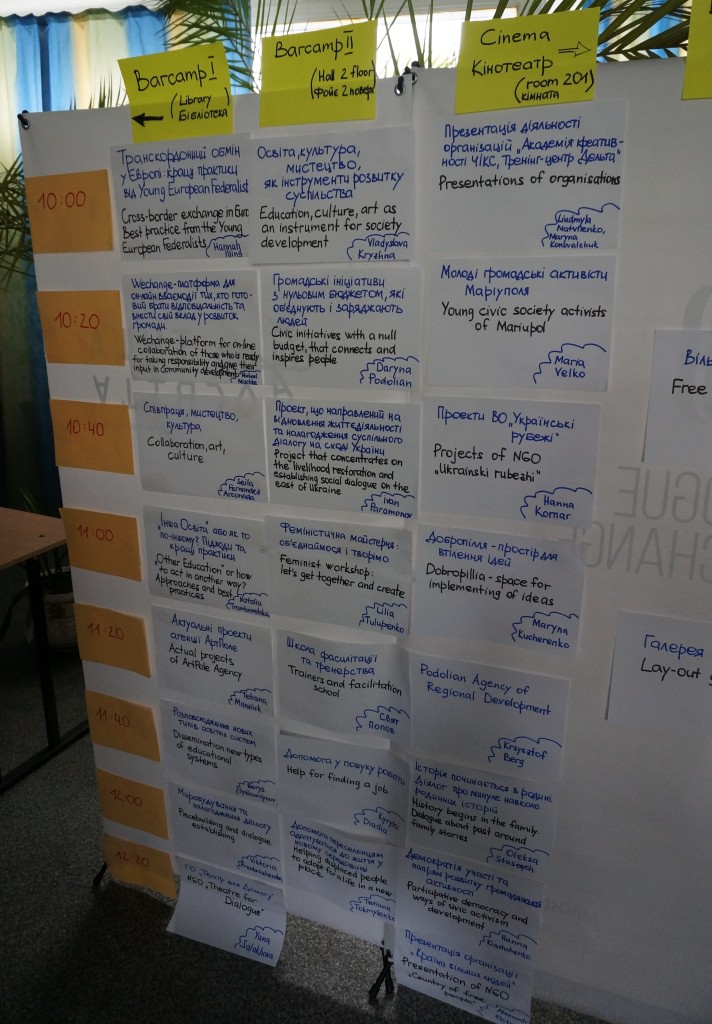 Barcamp I
(Library
Бібліотека)
Barcamp II
(Hall 2 floor)
Фойє 2 поверх)
Cinema
Кінотеатр
(room 201)
кімната
10:00
Транскордонний обмін
у Європі: кращі практики
від Young European Federalist
Cross-border exchange in Euro
Best practice from the Young
European Federalists
Hannah
Освіта, культура,
мистецтво,
як інструменти розвитку
суспільства
Education, culture, art as
an instrument for society
development
Vladyslava
Kryzhna
Презентація діяльності
організацій „Академія креатив-
ності ЧІКС, Тренінг-центр Дельта"
Presentations of organisations
Liudmyla
Maryna
Konovalchuk
10:20
Wechange-платформа для
онлайн взаємодії тих, хто гото-
вий брати відповідальність та
внести свій вклад у розвиток
громади.
Wechange-platform for on-line
collaboration of those who is ready
for taking responsibility and give their
input in community development
Громадські ініціативи
з нульовим бюджетом, які
об'єднують і заряджають
людей
Civic initiatives with a null
budget, that connects and
inspires people
Daryna
Podolian
Молоді громадські активісти
Маріуполя
Young civic society activists
of Mariupol
Maria
Velko
10:40
Співпраця, мистецтво,
культура
Collaboration, art,
culture
Seila
Fernandez
Arconada
Проект, що направлений на
відновлення життєдіяльності
та налагодження суспільного
діалогу на сході України
Project that concentrates on
the livelihood restoration and
establishing social dialogue on the
east of Ukraine
Ivan
Paramonov
Проекти ВО „Українські
рубежі"
Projects of NGO
„Ukrainski rubezhi"
Hanna
Komar
11:00
„Інша Освіта" або як то
по-іншому? Підходи та
кращі практики
„Other Education" or how
to act in another way?
Approaches and best
practices
Natalia
Феміністична майстерня:
об'єднаймося і творімо
Feminist workshop:
let's get together and create
Lilia
Tulupenko
Добропілля - простір для
втілення ідей
Dobropillia - space for
implementing of ideas
Maryna
Kucherenko
11:20
Актуальні проекти
агенції АртПоле
Actual projects
of ArtPole Agency
Tetiana
Школа фасилітації
та тренерства
Trainers and facilitation
school
Свят
Попов
Podolian Agency of
Regional Development
Krzysztof
Berg
11:40
Розповсюдження нових
типів освітніх систем
Dissemination new types
of educational
systems
Borys
Допомога у пошуку роботи
Help for finding a job
Kyrylo
Diadia
Історія починається в родині
Діялог про минуле навколо
родинних історій
History begins in the family
Dialogue about past around
family stories
Oleksa
Stasevych
12:00
Миробудування та
налагодження діалогу
Piecebuilding and dialogue
establishing
Viktoria
Допомога переселенцям
адаптуватися до життя у
новому середовищі
Helping displaced people
to adopt for a life in a new
place.
Tetiana
Демократія участі та
напрям розвитку громадянської
активності
Participative democracy and
ways of civic activism
development
Hanna
12:20
ГО „Театр для Діалогу"
NGO „Theatre for
Dialogue"
Yana
Salakhova
Презентація організації
„Країна вільних людей"
Presentation of NGO
„Country of free
people"
Віль
Free
OGUE
CHANGE
Галерея
Lay-out